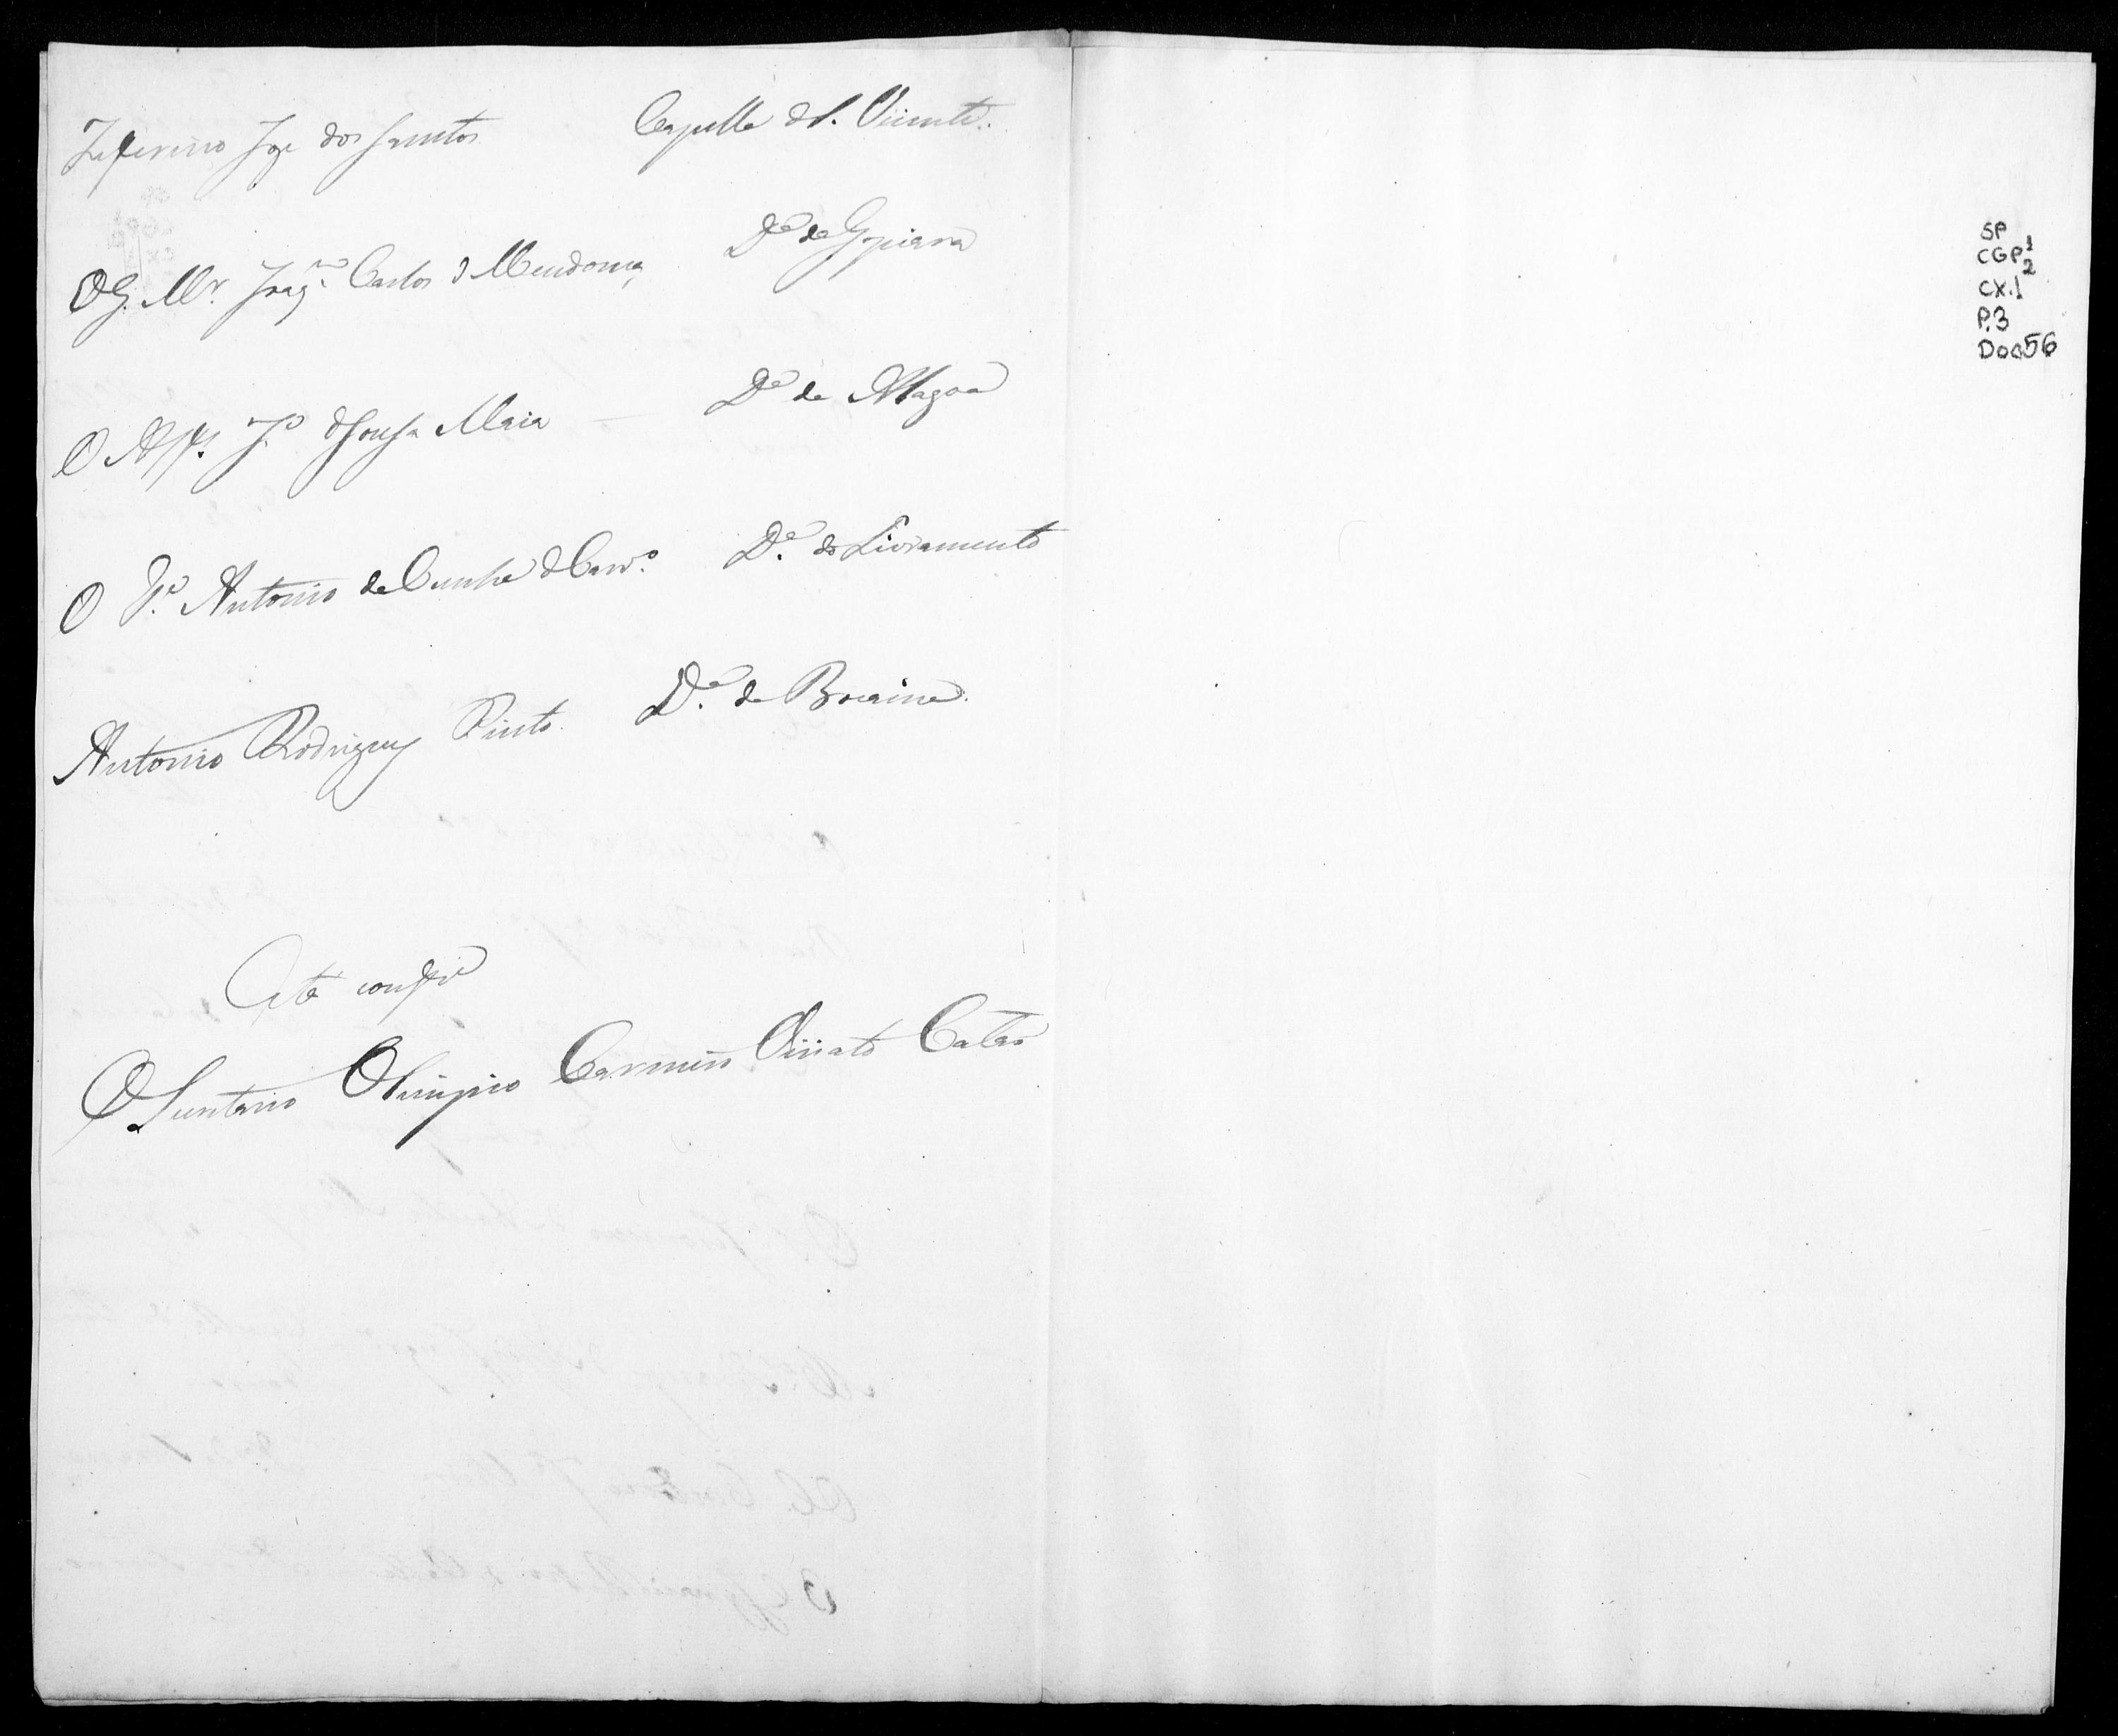 Zeferino Joze dos Santos Capella de S. Vicente.
O G. Mr. Joaqm. Carlos d Mendonça Da. de Gopiara
O Alfs. Jo. de Sousa Maia — Da. de Alagoa
O Pe. Antonio da Cunha de Carvo. Da. do Livramento
Antonio Rodrigues Pinto. Da. de Bocaina.
Está confe.
O Secretario Olimpio Carneiro Viriato Catão
SP
CGP 1/2
CX.1
P.3
Doc56